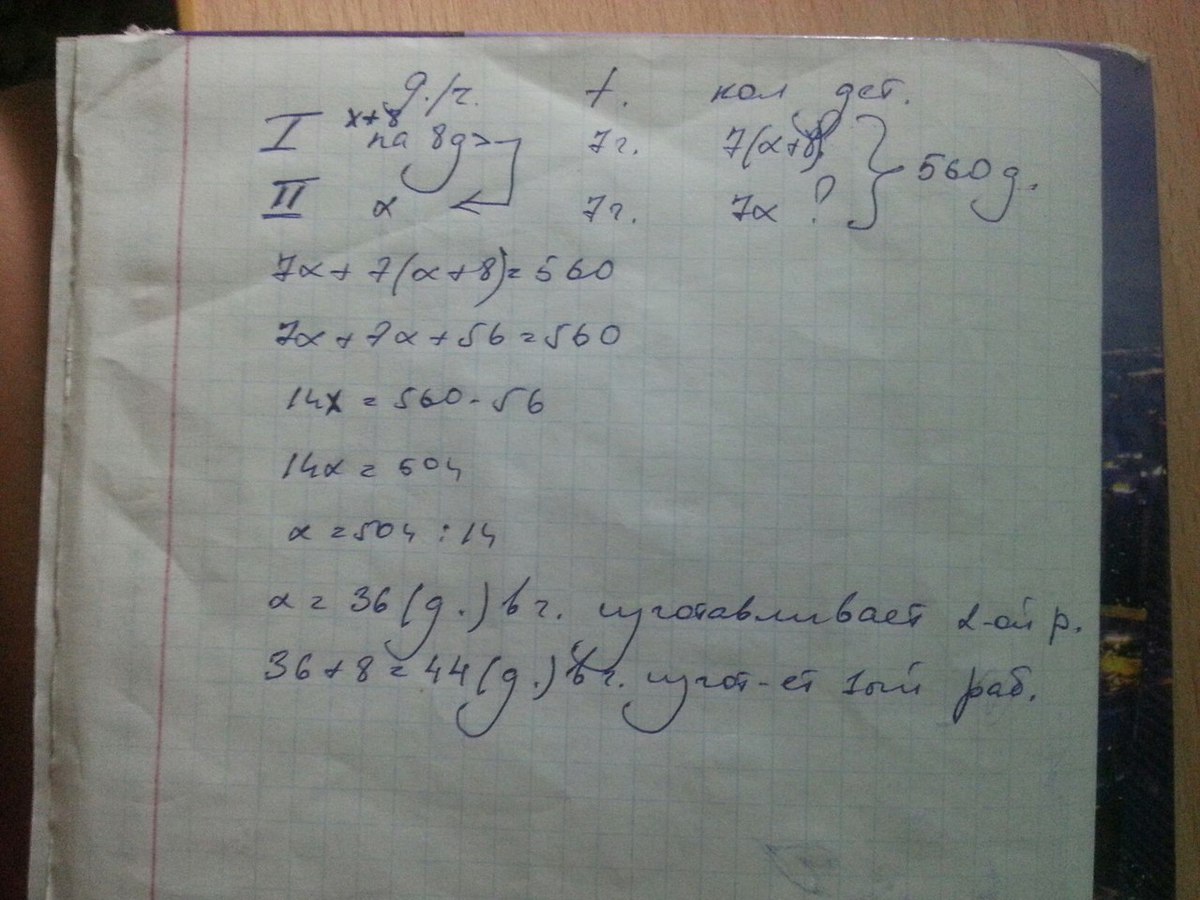 д./ч. t. кол дет.
I x+8 на 8д> 7ч. 7(x+8) } 560д.
II x 7ч. 7x ?
7x + 7(x+8) = 560
7x + 7x + 56 = 560
14x = 560 - 56
14x = 504
x = 504 : 14
x = 36 (д.) в ч. изготавливает 2-ой р.
36 + 8 = 44 (д.) в ч. изгот-ет 1ый раб.